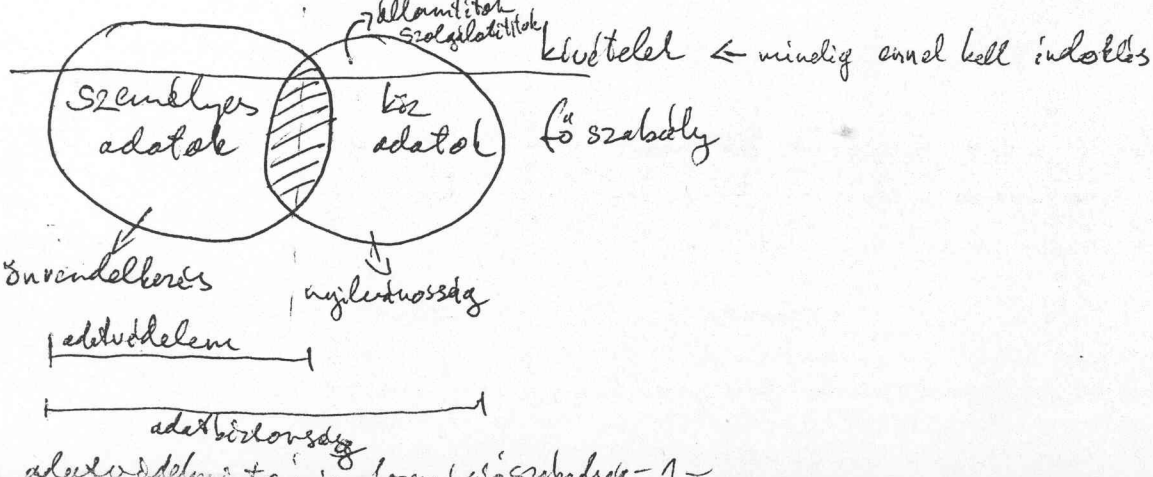 államtitok
szolgálati titok
kivételek ← mindig ennél kell indoklás
személyes
adatok
köz
adatok
fő szabály
önrendelkezés
nyilvánosság
adatvédelem
adatbiztonság